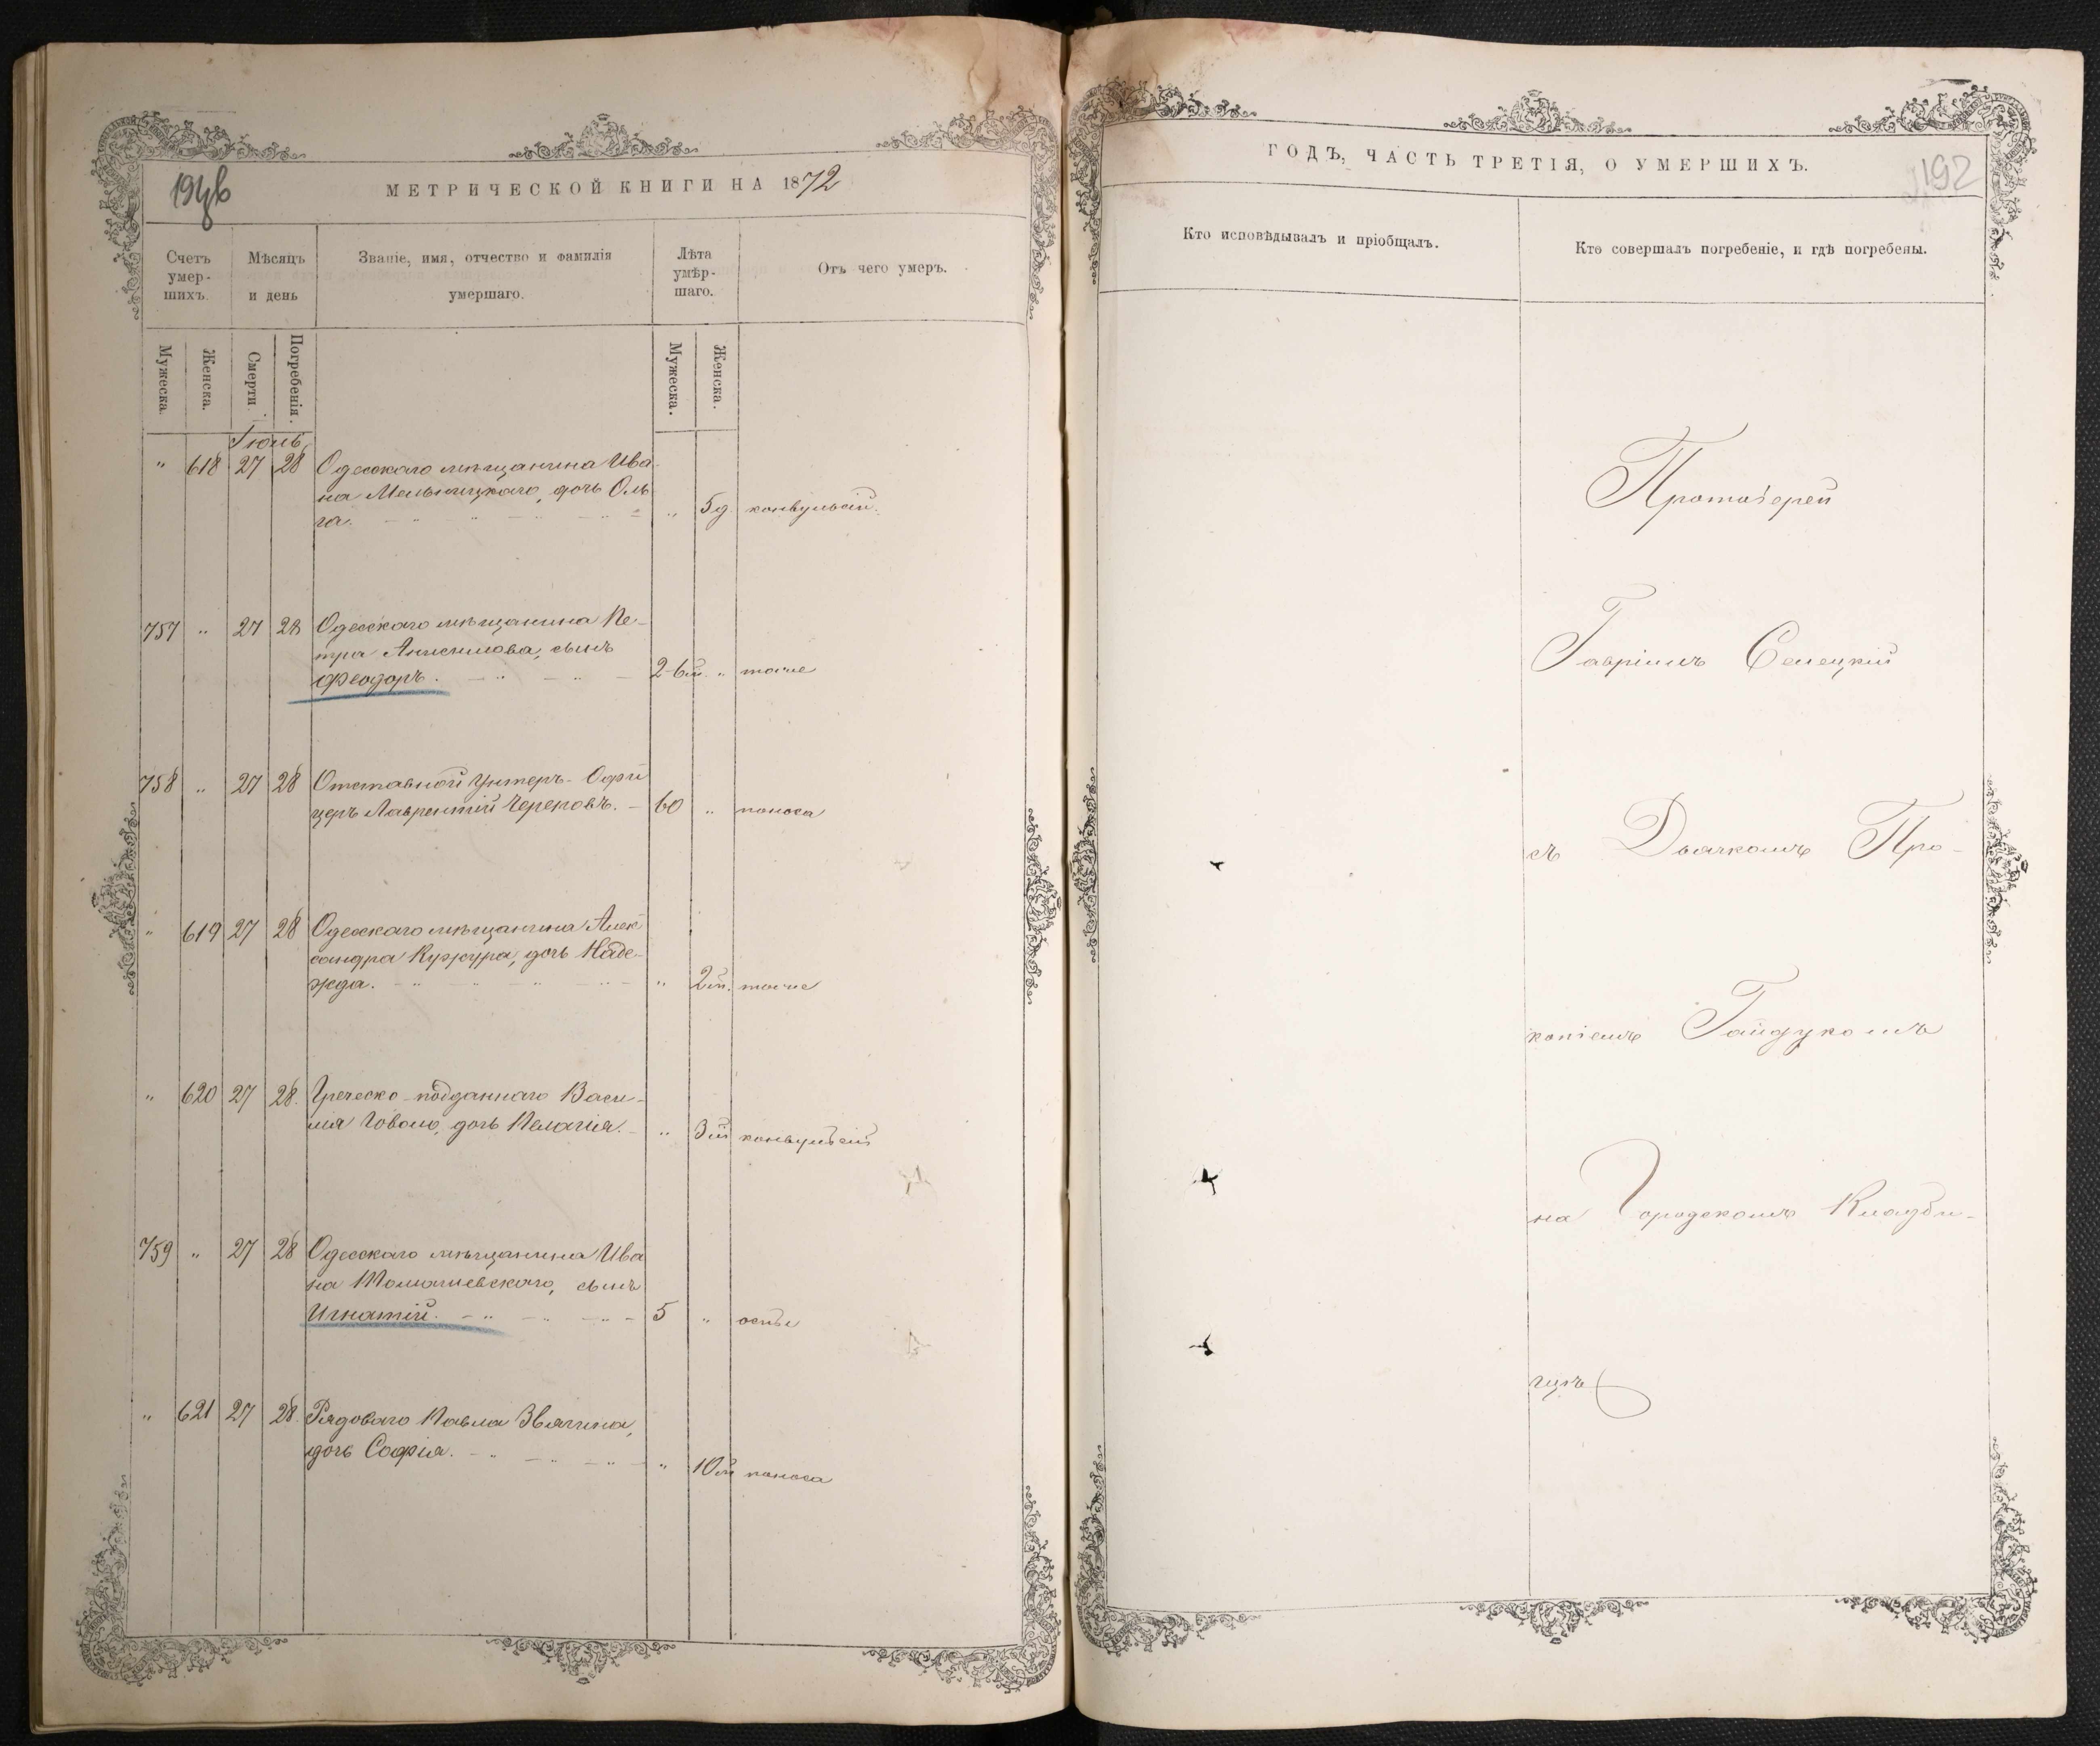 МЕТРИЧЕСКОЙ КНИГИ НА 1872
Счетъ умер-шихъ.
Мѣсяцъ и день
Званіе, имя, отчество и фамилія умершаго.
Лѣта умер-шаго.
Отъ чего умеръ.
Мужеска.
Женска.
Смерти.
Погребенія.
Мужеска.
Женска.
Іюль
" 618 27 28 Одесскаго мѣщанина Ива-
на Мельницкаго, дочь Оль
га. " 5 д. конвульсій.
757 " 27 28 Одесскаго мѣщанина Пе-
тра Анисимова, сынъ
Феодоръ. 2-6 м. " тоже
758 " 27 28 Отставной Унтеръ-Офи
церъ Лаврентій Череповъ. 60 " поноса
" 619 27 28 Одесскаго мѣщанина Алек
сандра Кужура, дочь Наде-
жда. " 2 м. тоже
" 620 27 28. Греческо-подданнаго Васи-
лія дочь Пелагія. " 3 м конвульсій
759 " 27 28 Одесскаго мѣщанина Ива
на Томашевскаго, сынъ
Игнатій. 5 " оспы
" 621 27 28. Рядоваго Павла Звягина,
дочь Софія. " 10 м поноса
ГОДЪ, ЧАСТЬ ТРЕТІЯ, О УМЕРШИХЪ.
192
Кто исповѣдывалъ и пріобщалъ.
Кто совершалъ погребеніе, и гдѣ погребены.
Протоіерей
Гавріилъ Селецкій
съ Дьячкомъ Про-
копіемъ Гайдукомъ
на Городскомъ Кладби-
щѣ